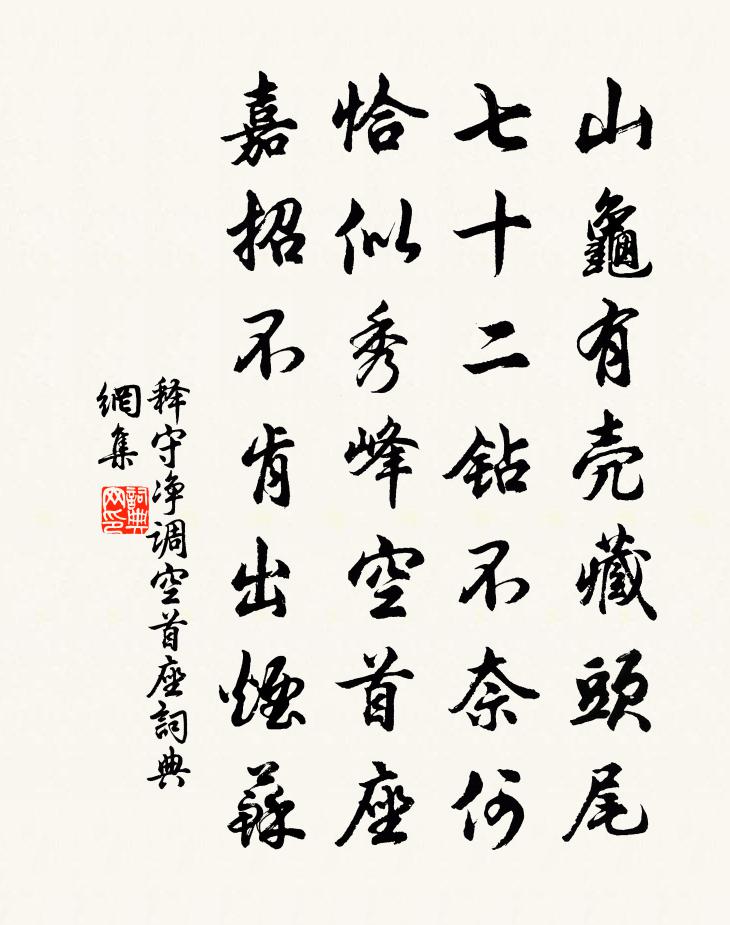 山龜有壳藏頭尾
七十二鉆不奈何
恰似秀峰空首座
嘉招不肯出煙蘇
释守净调空首座詞典
網集
詞典
网